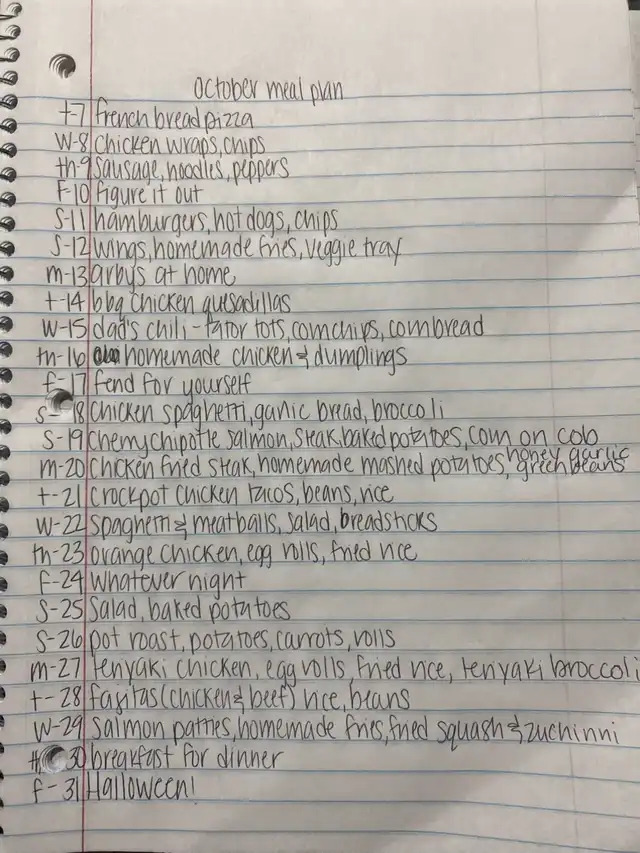 October meal plan
t-7 french bread pizza
W-8 Chicken wraps, chips
th-9 sausage, noodles, peppers
F-10 figure it out
S-11 hamburgers, hot dogs, chips
S-12 wings, homemade fries, veggie tray
m-13 arbys at home
t-14 bbq chicken quesadillas
W-15 dad's chili-tator tots, cornchips, cornbread
th-16 homemade chicken & dumplings
f-17 fend for yourself
S-18 chicken spaghetti, garlic bread, broccoli
S-19 cherry chipotle salmon, steak, baked potatoes, corn on cob
m-20 chicken fried steak, homemade mashed potatoes, honey garlic green beans
t-21 crockpot chicken tacos, beans, rice
W-22 spaghetti & meatballs, salad, breadsticks
th-23 orange chicken, egg rolls, fried rice
F-24 whatever night
S-25 Salad, baked potatoes
S-26 pot roast, potatoes, carrots, rolls
m-27 teriyaki chicken, egg rolls, fried rice, teriyaki broccoli
t-28 fajitas (chicken & beef) rice, beans
W-29 salmon patties, homemade fries, fried squash & zuchinni
30 breakfast for dinner
f-31 Halloween!